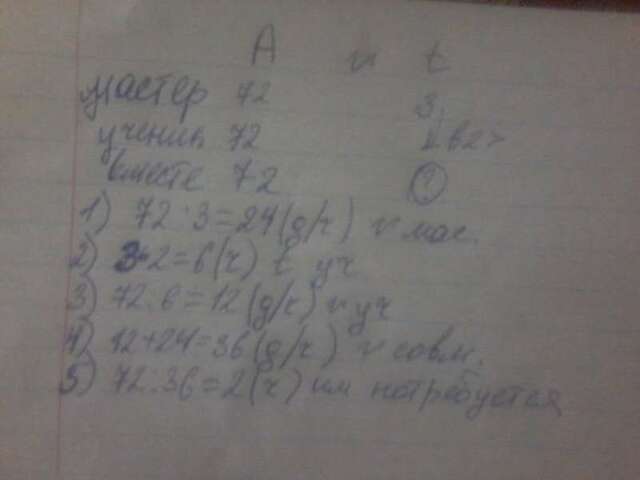 А v t
мастер 72 3
ученик 72 в2>
вместе 72 ?
1) 72:3=24(д/ч) v мас.
2) 3·2=6(ч) t уч
3) 72:6=12(д/ч) v уч
4) 12+24=36(д/ч) v совм.
5) 72:36=2(ч) им потребуется